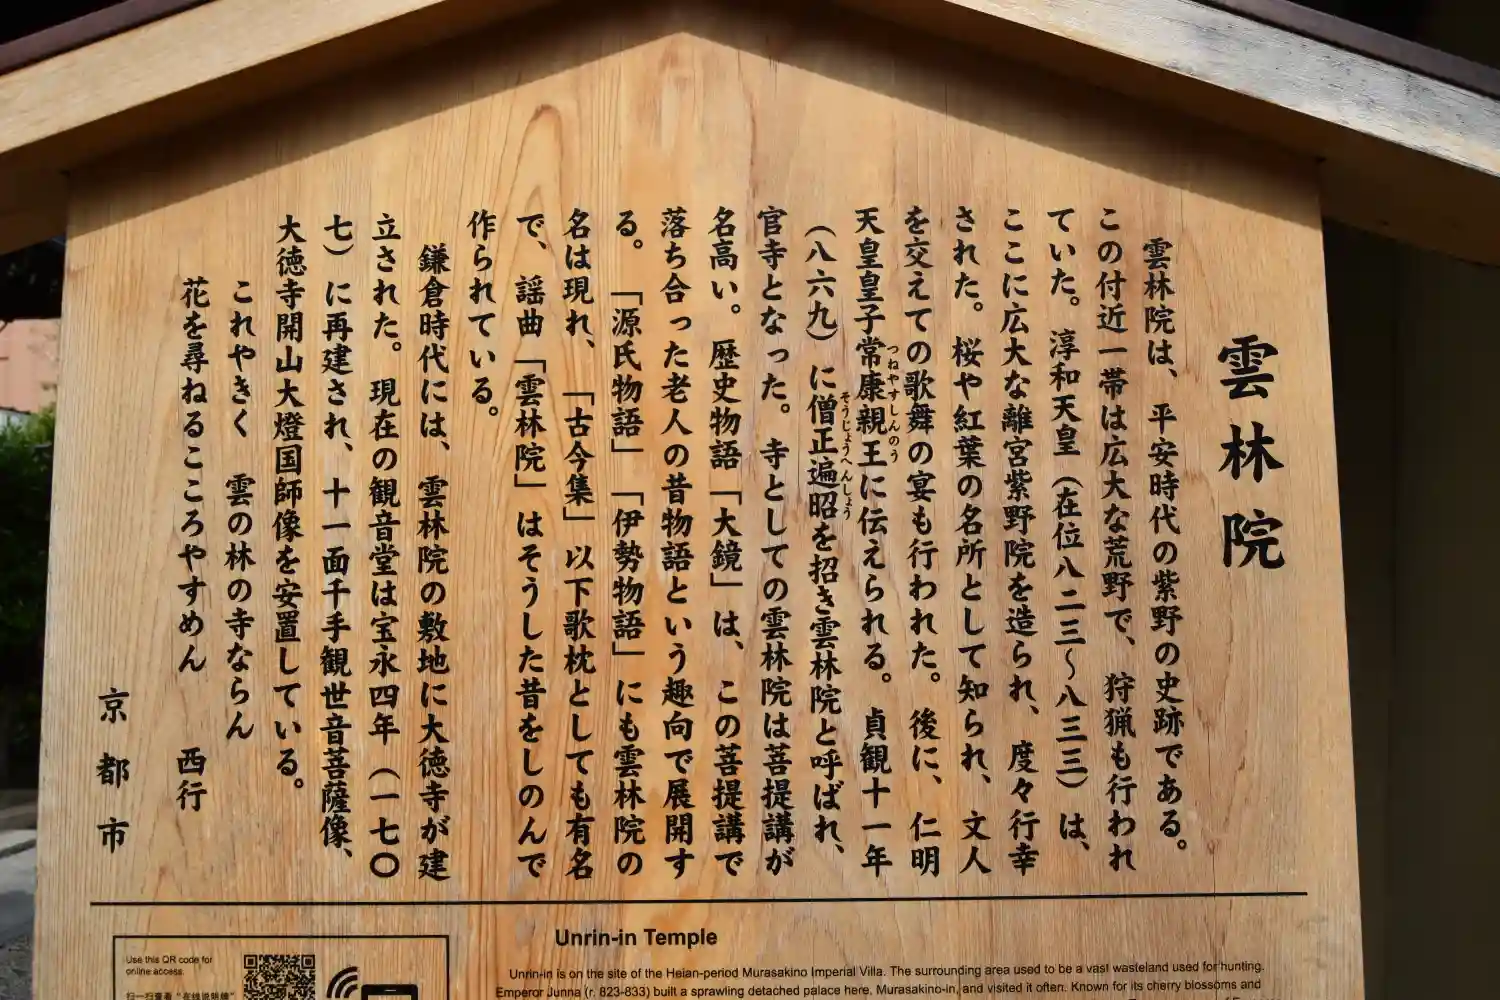 雲林院
雲林院は、平安時代の紫野の史跡である。
この付近一帯は広大な荒野で、狩猟も行われ
ていた。淳和天皇（在位八二三～八三三）は、
ここに広大な離宮紫野院を造られ、度々行幸
された。桜や紅葉の名所として知られ、文人
を交えての歌舞の宴も行われた。後に、仁明
天皇皇子常康親王に伝えられる。貞観十一年
つねやすしんのう
（八六九）に僧正遍昭を招き雲林院と呼ばれ、
そうじょうへんしょう
官寺となった。寺としての雲林院は菩提講が
名高い。歴史物語「大鏡」は、この菩提講で
落ち合った老人の昔物語という趣向で展開す
る。「源氏物語」「伊勢物語」にも雲林院の
名は現れ、「古今集」以下歌枕としても有名
で、謡曲「雲林院」はそうした昔をしのんで
作られている。
鎌倉時代には、雲林院の敷地に大徳寺が建
立された。現在の観音堂は宝永四年（一七〇
七）に再建され、十一面千手観世音菩薩像、
大徳寺開山大燈国師像を安置している。
これやきく　雲の林の寺ならん
花を尋ねるこころやすめん　西行
京都市
Use this QR code for
online access.
扫一扫查看“在线说明牌”
Unrin-in Temple
Unrin-in is on the site of the Heian-period Murasakino Imperial Villa. The surrounding area used to be a vast wasteland used for hunting.
Emperor Junna (r. 823-833) built a sprawling detached palace here, Murasakino-in, and visited it often. Known for its cherry blossoms and